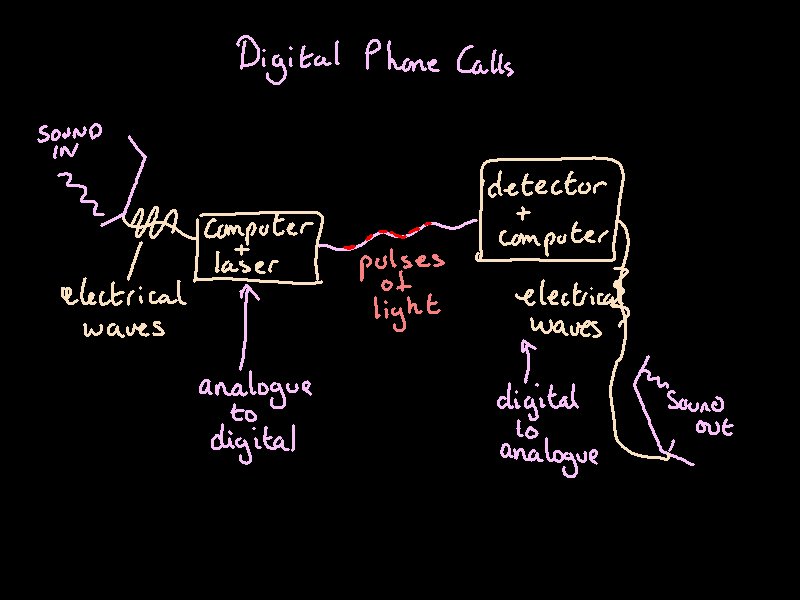 Digital Phone Calls
SOUND
IN
computer
+
laser
electrical
waves
analogue
to
digital
pulses
of
light
detector
+
computer
electrical
waves
digital
to
analogue
SOUND
OUT